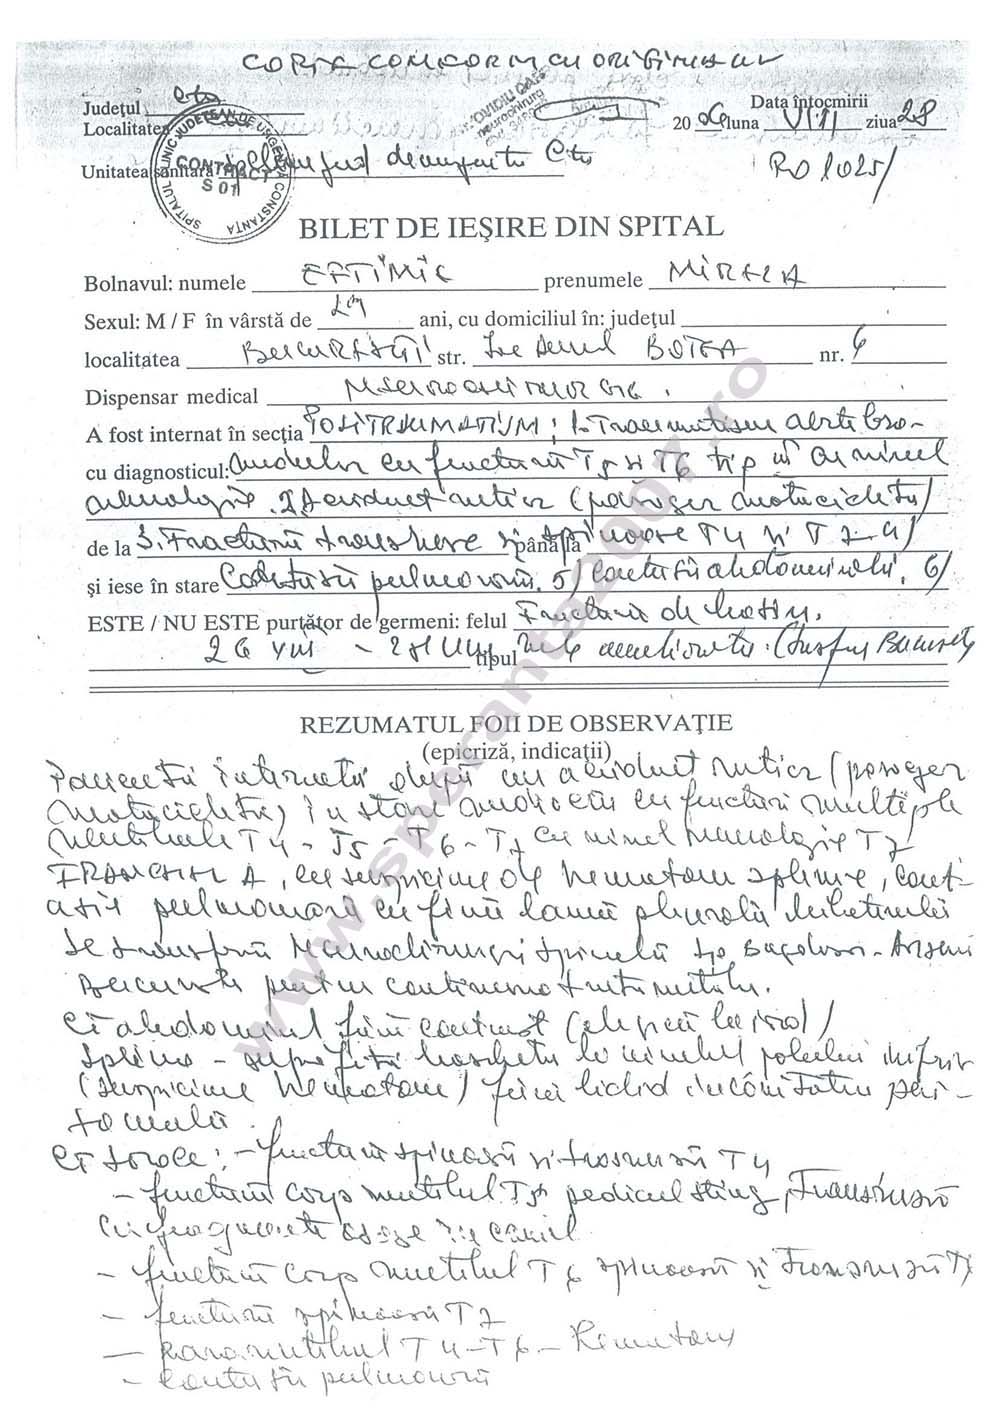 COPIE CONFORM CU ORIGINALUL
Județul Cta
Localitatea
Data întocmirii
20 06 luna VIII ziua 28
Unitatea sanitară de urgență Cta
RO 1025/
SPITALUL CLINIC JUDEȚEAN DE URGENȚĂ CONSTANȚA
CONTRACT
S 01
OVIDIU
neurochirurg
BILET DE IEȘIRE DIN SPITAL
Bolnavul: numele EFTIMIE prenumele MIRELA
Sexul: M / F în vârstă de ani, cu domiciliul în: județul
localitatea BUCUREȘTI str. BOTEA nr. 6
Dispensar medical
A fost internat în secția POLITRAUMATISM: 1. Traumatism vertebro-
cu diagnosticul: medular cu fractură T5 și T6 tip
neurologic. 2/ Accident rutier (pasager motocicletă)
de la 3. Fractură transverse și până la spinoase T4 și T7 4/
și iese în stare Contuzii pulmonară. 5/ Contuzii abdominală. 6/
ESTE / NU ESTE purtător de germeni: felul Fractură de bazin.
26 VIII - 28 VIII tipul
REZUMATUL FOII DE OBSERVAȚIE
(epicriză, indicații)
Pacientă internată după un accident rutier (pasager
motocicletă) în stare mediocră cu fracturi multiple
vertebrale T4 - T5 - T6 - T7 cu nivel neurologic T7
FRANCKEL A, cu suspiciune de hematom splină, cont-
uzie pulmonară cu fină lamă pleurală bilaterală
Se transferă Neurochirurgie Spitalul Bagdasar-Arseni
București pentru continuarea tratamentului.
CT abdominal fără contrast
Splina - la nivelul polului inferior
(suspiciune hematom) fără lichid în cavitatea peri-
toneală.
CT torace: - fractură spinoasă și transversă T4
- fractură corp vertebral T5 pedicul stâng, transversă
cu fragmente osoase în canal
- fractură corp vertebral T6 spinoasă și transversă
- fractură spinoasă T7
- paravertebral T4-T6 - hematom
- Contuzii pulmonară
www.speranta2007.ro